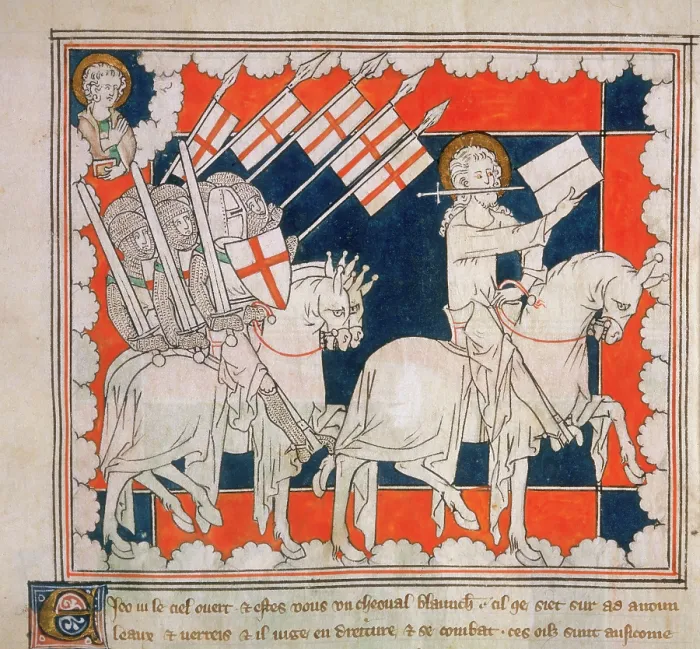 E Jeo vi le ciel overt ⁊ estes vous vn cheoual blaunch · cil qe siet sur ad anoun
leaux ⁊ verreis ⁊ il iuge en dreiture ⁊ se combat · ces oilz sunt ausicome